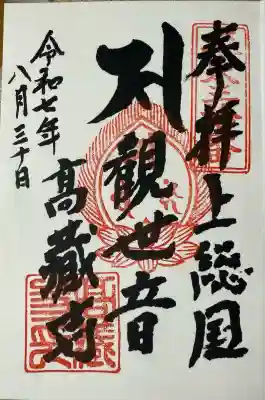 奉拝上総国
聖観世音
高蔵寺
令和七年
八月三十日